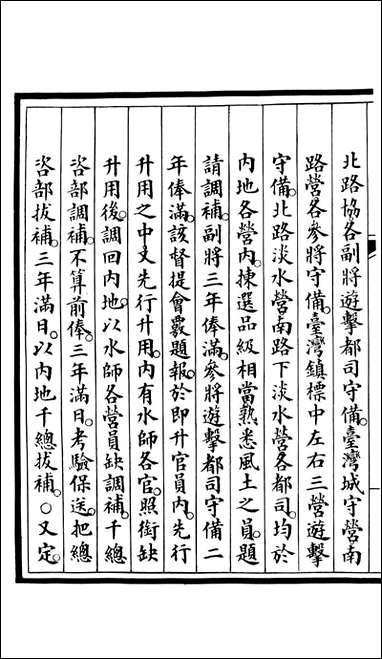 北路協各副將遊擊都司守備。臺灣城守營南
路營各參將守備。臺灣鎮標中左右三營遊擊
守備。北路淡水營南路下淡水營各都司。均於
內地各營內。揀選品級相當熟悉風土之員。題
請調補。副將三年俸滿。參將遊擊都司守備二
年俸滿。該督提會覈題報。於即升官員內。先行
升用之中。又先行升用。內有水師各官。照銜缺
升用後。調回內地。以水師各營員缺調補。千總
咨部調補。不算前俸。三年滿日。考驗保送。把總
咨部拔補。三年滿日。以內地千總拔補。○又定。